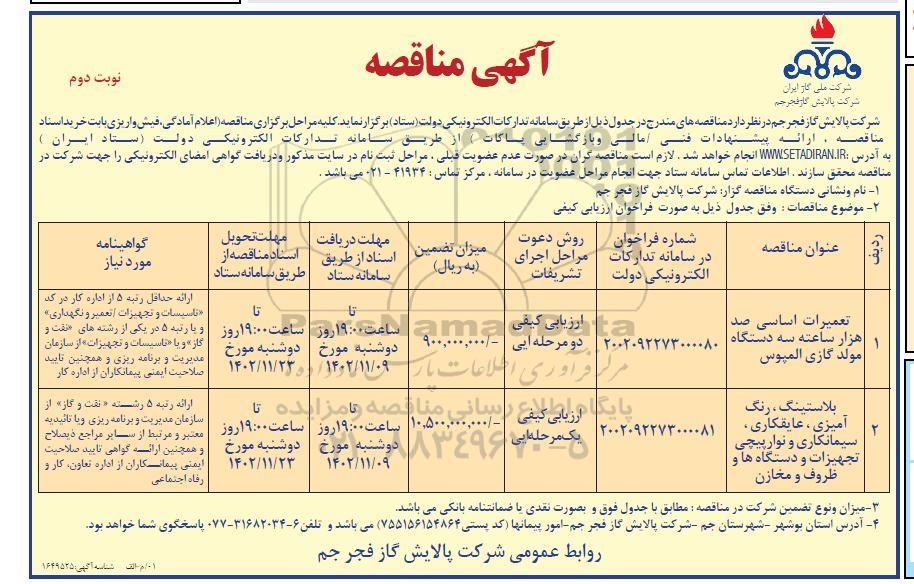 آگهی مناقصه
نوبت دوم
شرکت ملی گاز ایران
شرکت پالایش گاز فجر جم
شرکت پالایش گاز فجر جم در نظر دارد مناقصه های مندرج در جدول ذیل از طریق سامانه تدارکات الکترونیکی دولت (ستاد) برگزار نماید. کلیه مراحل برگزاری مناقصه (اعلام آمادگی، فیش واریزی بابت خرید اسناد
مناقصه ، ارائه پیشنهادات فنی /مالی وبازگشایی پاکات ) از طریق سامانه تدارکات الکترونیکی دولت (ستاد ایران )
به آدرس :WWW.SETADIRAN.IR انجام خواهد شد . لازم است مناقصه گران در صورت عدم عضویت قبلی ، مراحل ثبت نام در سایت مذکور ودریافت گواهی امضای الکترونیکی را جهت شرکت در
مناقصه محقق سازند . اطلاعات تماس سامانه ستاد جهت انجام مراحل عضویت در سامانه ، مرکز تماس : ۴۱۹۳۴ - ۰۲۱ می باشد .
۱- نام ونشانی دستگاه مناقصه گزار: شرکت پالایش گاز فجر جم
۲- موضوع مناقصات : وفق جدول ذیل به صورت فراخوان ارزیابی کیفی
ردیف
عنوان مناقصه
شماره فراخوان
در سامانه تدارکات
الکترونیکی دولت
روش دعوت
مراحل اجرای
تشریفات
میزان تضمین
(به ریال)
مهلت دریافت
اسناد از طریق
سامانه ستاد
مهلت تحویل
اسناد مناقصه از
طریق سامانه ستاد
گواهینامه
مورد نیاز
۱
تعمیرات اساسی صد
هزار ساعته سه دستگاه
مولد گازی المپوس
۲۰۰۲۰۹۲۲۷۳۰۰۰۰۸۰
ارزیابی کیفی
دو مرحله ایی
۹۰۰,۰۰۰,۰۰۰/-
تا
ساعت۱۹:۰۰روز
دوشنبه مورخ
۱۴۰۲/۱۱/۰۹
تا
ساعت۱۹:۰۰روز
دوشنبه مورخ
۱۴۰۲/۱۱/۲۳
ارائه حداقل رتبه ۵ از اداره کار در کد
«تاسیسات و تجهیزات /تعمیر و نگهداری»
و یا رتبه ۵ در یکی از رشته های «نفت و
گاز» و یا «تاسیسات و تجهیزات» از سازمان
مدیریت و برنامه ریزی و همچنین تایید
صلاحیت ایمنی پیمانکاران از اداره کار
۲
بلاستینگ ، رنگ
آمیزی ، عایقکاری ،
سیمانکاری و نوارپیچی
تجهیزات و دستگاه ها و
ظروف و مخازن
۲۰۰۲۰۹۲۲۷۳۰۰۰۰۸۱
ارزیابی کیفی
یک‌مرحله‌ایی
۱۰,۵۰۰,۰۰۰,۰۰۰/-
تا
ساعت۱۹:۰۰روز
دوشنبه مورخ
۱۴۰۲/۱۱/۰۹
تا
ساعت۱۹:۰۰روز
دوشنبه مورخ
۱۴۰۲/۱۱/۲۳
ارائه رتبه ۵ رشته « نفت و گاز» از
سازمان مدیریت و برنامه ریزی ویا تائیدیه
معتبر و مرتبط از سایر مراجع ذیصلاح
و همچنین ارائه گواهی تایید صلاحیت
ایمنی پیمانکاران از اداره تعاون، کار و
رفاه اجتماعی
۳-میزان ونوع تضمین شرکت در مناقصه : مطابق با جدول فوق و بصورت نقدی یا ضمانتنامه بانکی می باشد.
۴- آدرس استان بوشهر -شهرستان جم -شرکت پالایش گاز فجر جم-امور پیمانها (کد پستی۷۵۵۱۵۶۱۵۴۸۶۴) می باشد و تلفن۶-۳۱۶۸۲۰۳۴-۰۷۷ پاسخگوی شما خواهد بود.
روابط عمومی شرکت پالایش گاز فجر جم
۰۱/م-الف شناسه آگهی:۱۶۴۹۵۲۵
PasNamadData
مرکز فرآوری اطلاعات پارس نماد داده ها
پایگاه اطلاع رسانی مناقصه و مزایده
۰۲۱-۸۸۳۴۹۶۷۰-۵